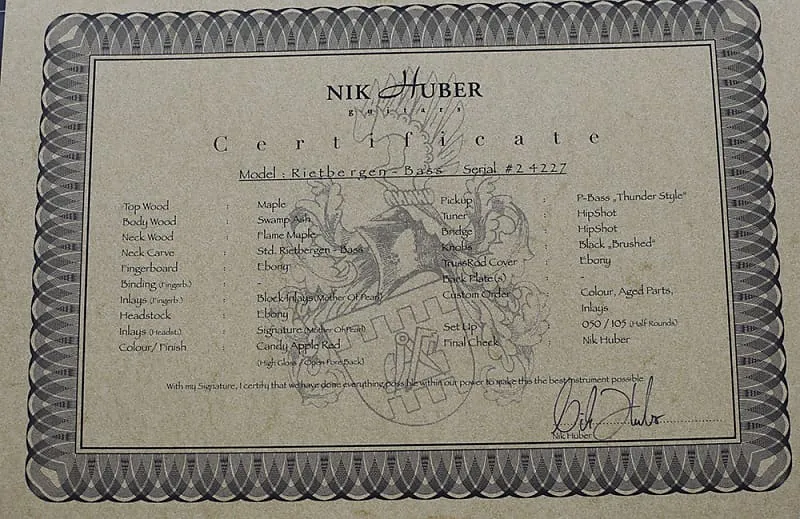 NIK HUBER
guitars
Certificate
Model : Rietbergen - Bass Serial #24227
Top Wood : Maple
Body Wood : Swamp Ash
Neck Wood : Flame Maple
Neck Carve : Std. Rietbergen - Bass
Fingerboard : Ebony
Binding (Fingerb.) : -
Inlays (Fingerb.) : Block Inlays (Mother Of Pearl)
Headstock : Ebony
Inlays (Headst.) : Signature (Mother Of Pearl)
Colour/ Finish : Candy Apple Red
(High Gloss / Open Pore Back)
Pickup : P-Bass „Thunder Style"
Tuner : HipShot
Bridge : HipShot
Knobs : Black „Brushed"
TrussRod Cover : Ebony
Back Plate(s) : -
Custom Order : Colour, Aged Parts,
Inlays
Set Up : 050 / 105 (Half Rounds)
Final Check : Nik Huber
With my Signature, I certify that we have done everything possible within our power to make this the best instrument possible
Nik Huber
Nik Huber